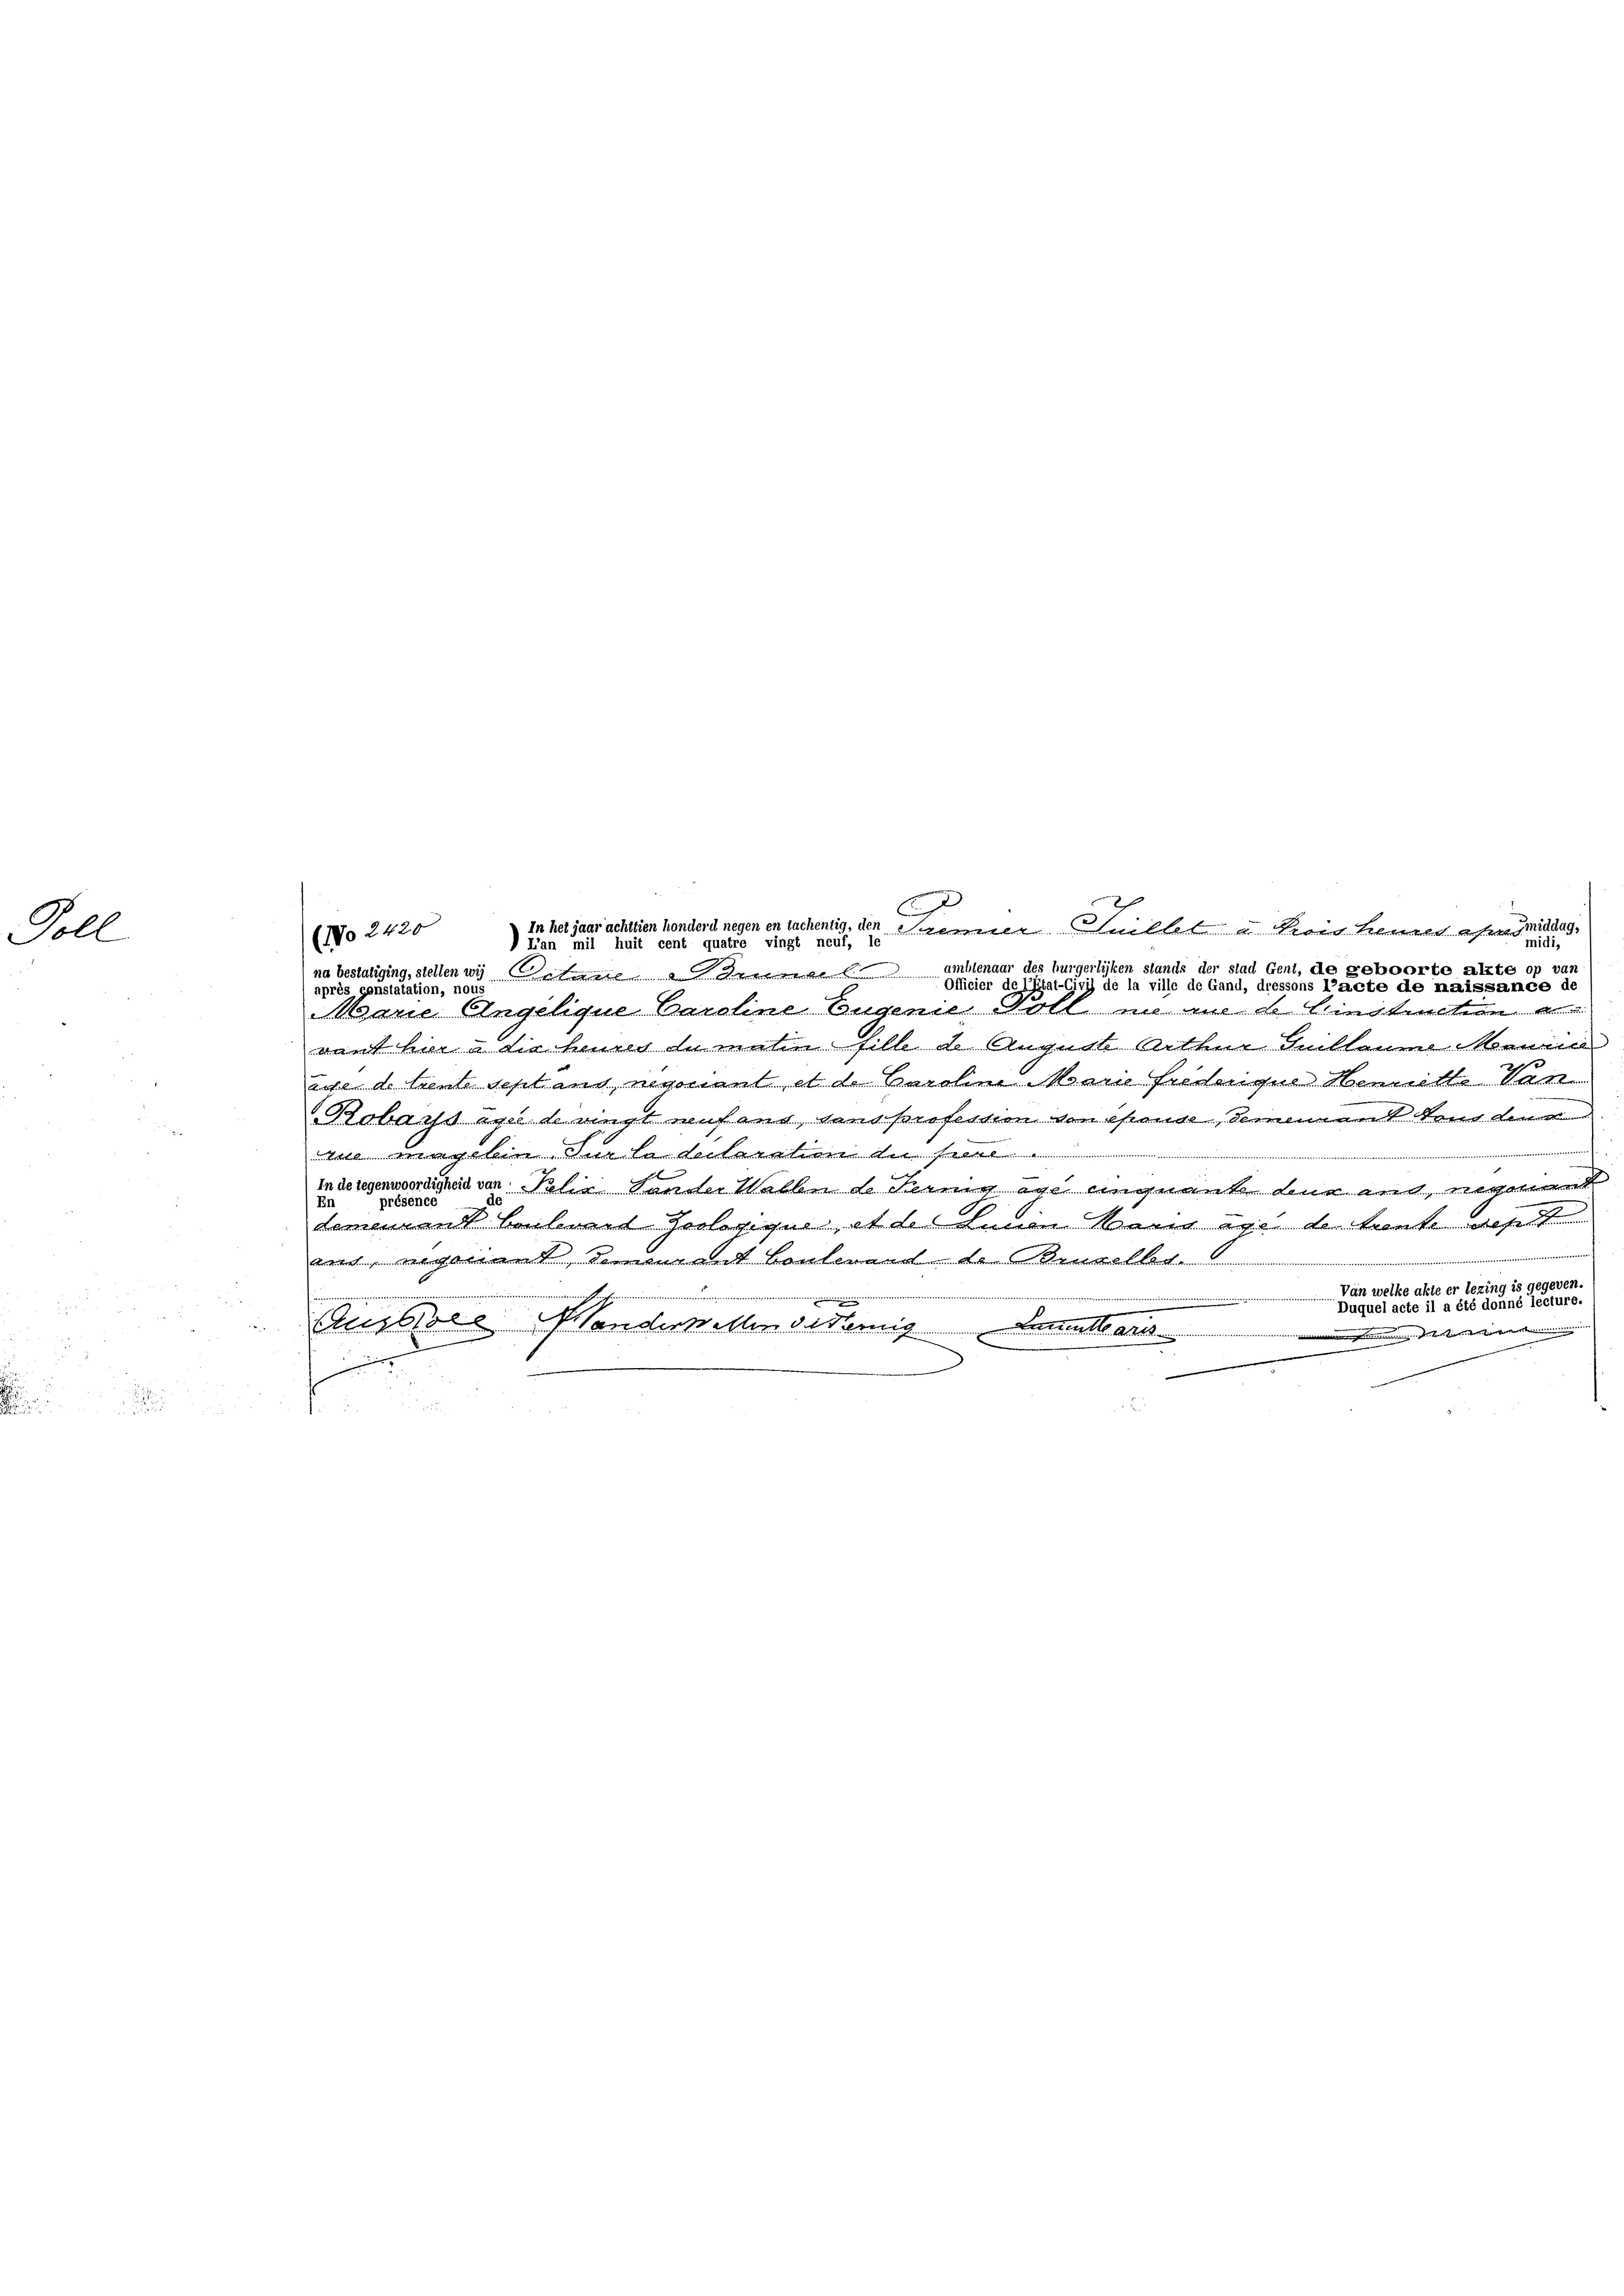 Poll
(No 2420 ) In het jaar achttien honderd negen en tachentig, den Premier Juillet à trois heures après middag,
L'an mil huit cent quatre vingt neuf, le midi,
na bestatiging, stellen wij Octave Bruneel ambtenaar des burgerlijken stands der stad Gent, de geboorte akte op van
après constatation, nous Officier de l'État-Civil de la ville de Gand, dressons l'acte de naissance de
Marie Angélique Caroline Eugenie Poll née rue de l'instruction a
vant hier à dix heures du matin fille de Auguste Arthur Guillaume Maurice
âgé de trente sept ans, négociant, et de Caroline Marie fréderique Henriette Van
Robays agée de vingt neuf ans, sans profession son épouse, demeurant tous deux
rue Sur la déclaration du père.
In de tegenwoordigheid van Felix Vander Wallen de Fernig agé cinquante deux ans, négociant
En présence de
demeurant boulevard Zoologique, et de Lucien Maris agé de trente sept
ans, négociant, demeurant boulevard de Bruxelles.
Van welke akte er lezing is gegeven.
Duquel acte il a été donné lecture.
Aug Poll FVanderwallen de Fernig Lucien Maris